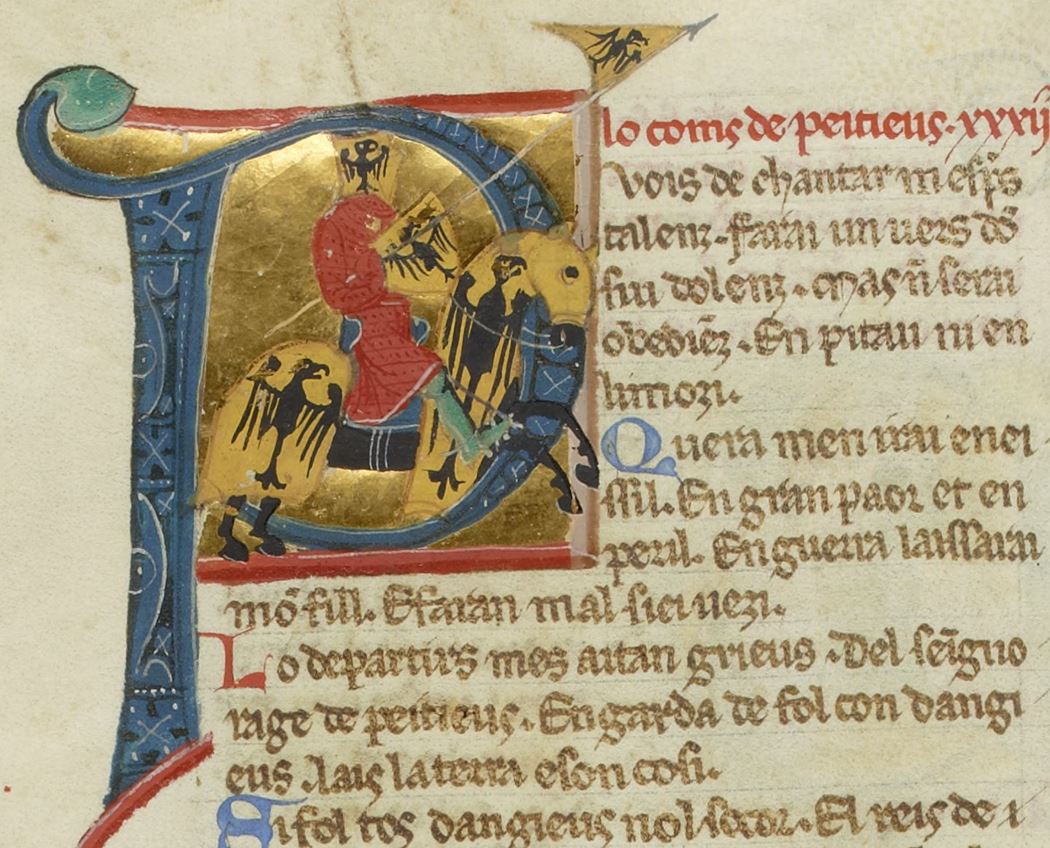 lo coms de peitieus. xxxij
Pvois de chantar mespˢ
talenz. farai un uers dō
sui dolenz. Mas ñ serai
obediēz. En pitau ni en
limozi.
Quera men irai enei
ssil. En gran paor et en
peril. En guerra laissarai
mō fill. E faran mal siei uezi.
Lo departirs mes aitan grieus. Del seīgno
rage de peitieus. En garda de fol con dangi
eus .lais la terra e son cosi.
Si fol cos dangieus nol socor. El reis de